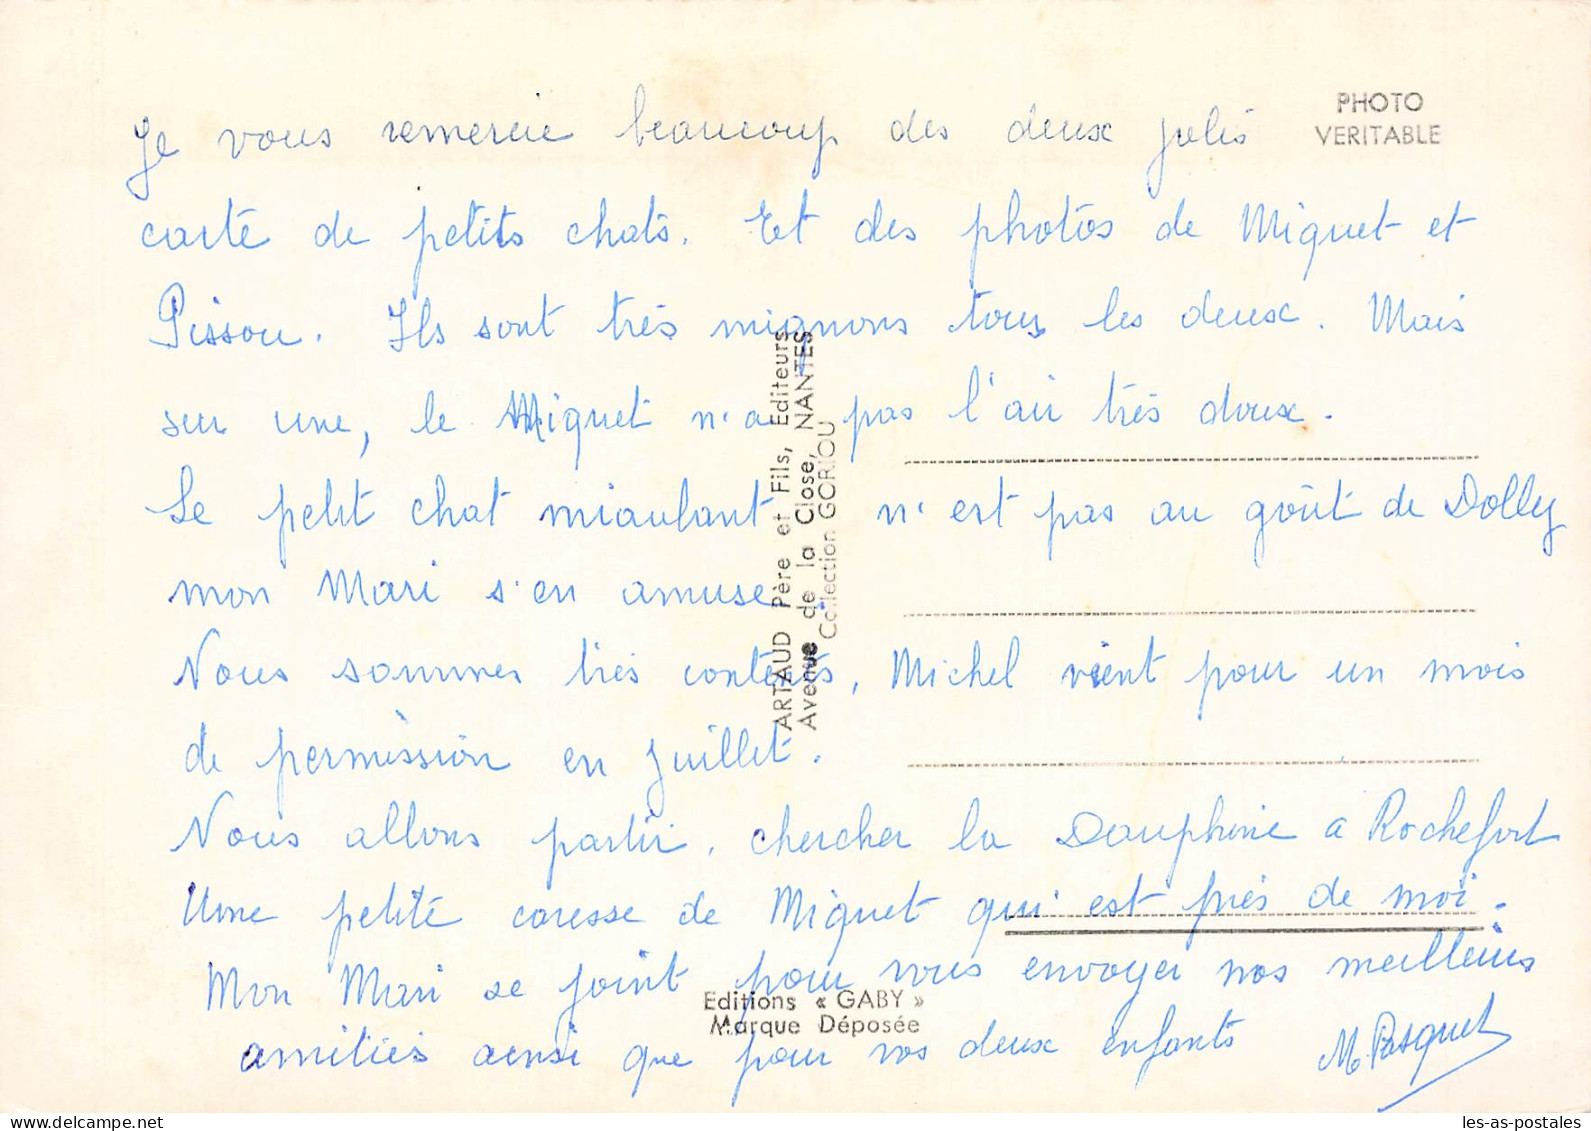 PHOTO
VERITABLE
Je vous remercie beaucoup des deux jolis
carte de petits chats. Et des photos de Miquet et
Pissou. Ils sont très mignons tous les deux. Mais
sur une, le Miquet n'a pas l'air très doux.
Le petit chat miaulant n'est pas au goût de Dolly
mon Mari s'en amuse
Nous sommes très contents, Michel vient pour un mois
de permission en Juillet.
Nous allons partir, chercher la Dauphine a Rochefort
Une petite caresse de Miquet qui est près de moi.
Mon Mari se joint pour vous envoyer nos meilleurs
amitiés ainsi que pour vos deux enfants M. Pasquet
ARTAUD Père et Fils, Editeurs
Avenue de la Close, NANTES
Collection GORIOU
Editions « GABY »
Marque Déposée
les-as-postales.com